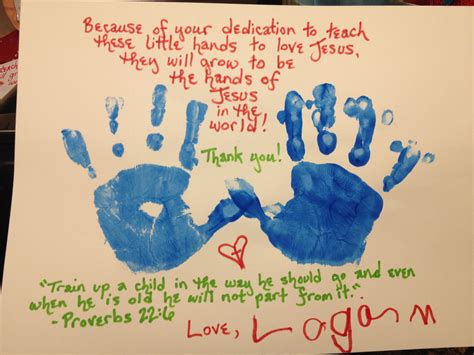 Because of your dedication to teach
these little hands to love Jesus,
they will grow to be
the hands of
Jesus
in the
world!
Thank you!
"Train up a child in the way he should go and even
when he is old he will not part from it."
- Proverbs 22:6
Love, Logan